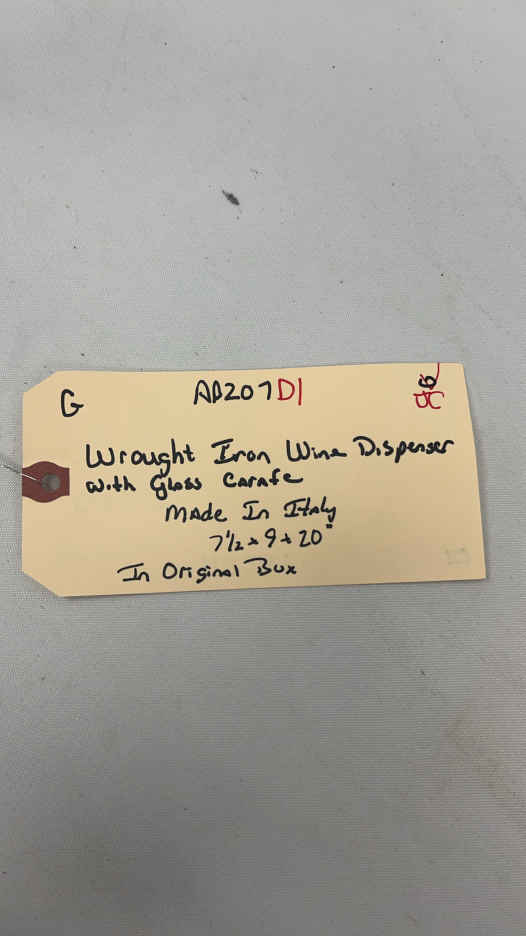 G
AB207D1
Wrought Iron Wine Dispenser
with Glass Carafe
Made In Italy
7 1/2 x 9 x 20"
In Original Box